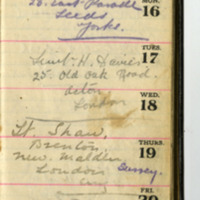 MON.
16
25. East Parade
Leeds
Yorks.
TUES.
17
Lieut. H. Davies
25. Old Oak Road.
Acton
London
WED.
18
Lt. Shaw,
Brenton,
New Maldin
Surrey.
London
THURS.
19
FRI.
20